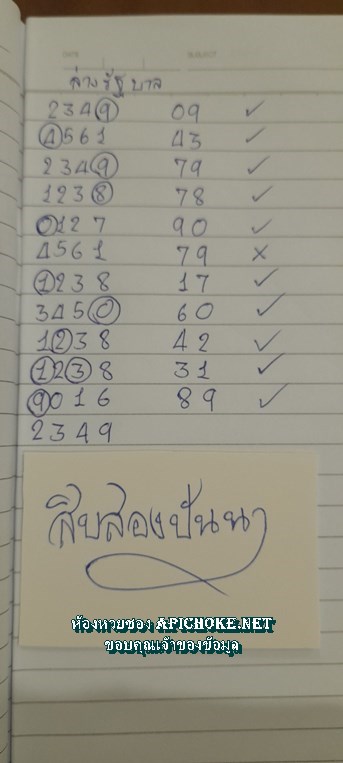 ล่างรัฐบาล
2349 09 ✓
4561 43 ✓
2349 79 ✓
1238 78 ✓
0127 90 ✓
4561 79 ×
1238 17 ✓
3450 60 ✓
1238 42 ✓
1238 31 ✓
9016 89 ✓
2349
สิบสองปันนา
ห้องหวยซอง APICHOKE.NET
ขอบคุณเจ้าของข้อมูล